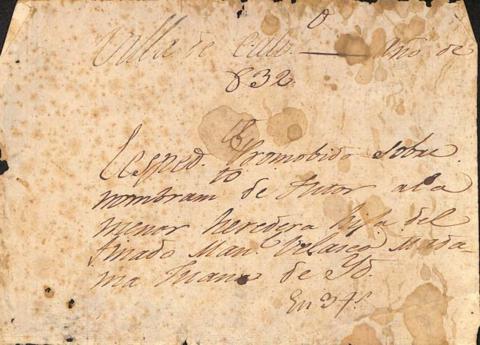 Villa de Año de
832
Exped.te Promobido sobre
nombram.to de tutor a la
menor heredera hija del
finado Man. Velasco Mada-
ma Juana de
En 34 f.